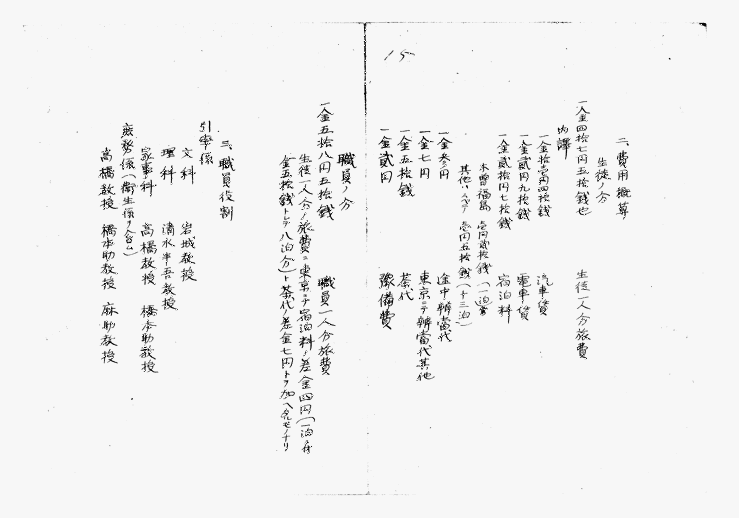 15
二、費用概算
生徒ノ分
一金四拾七円五拾銭也 生徒一人分旅費
内譯
一金拾壱円四拾銭 汽車賃
一金貳円九拾銭 電車賃
一金貳拾円七拾銭 宿泊料
木曽福島 壱円貳拾銭(一泊
其他ハスベテ 壱円五拾銭(十三泊)
一金参円 途中辨當代
一金七円 東京ニテ辨當代其他
一金五拾銭 茶代
一金貳円 豫備費
職員ノ分
一金五拾八円五拾銭 職員一人分旅費
生徒一人分ノ旅費ニ東京ニテ宿泊料ノ差金四円(一泊ノ差
金五拾銭トシテ八泊分)ト茶代ノ差金七円トヲ加ヘタルモノナリ
三、職員役割
引率係
文科 岩城教授
理科 清水半吾教授
家事科 高橋教授 橋本助教授
庶務係(衛生係ヲ含ム)
高橋教授 橋本助教授 麻助教授